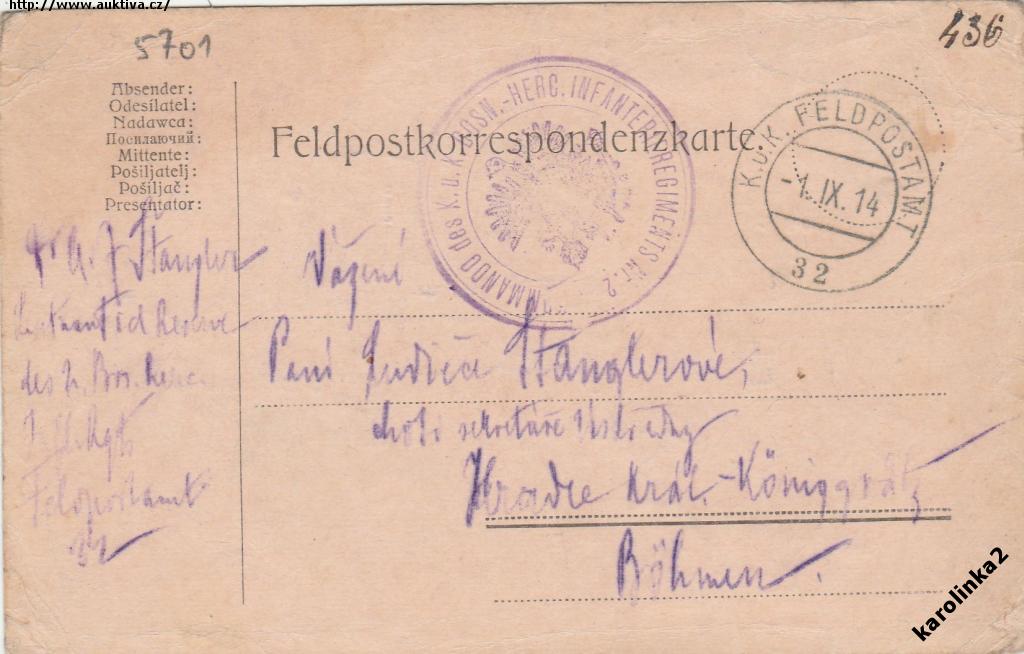 http://www.auktiva.cz/
5701
436
Absender:
Odesílatel:
Nadawca:
Посилаючий:
Mittente:
Pošiljatelj:
Pošiljač:
Presentator:
Feldpostkorrespondenzkarte.
KOMMANDO des K.u.K. BOSN.-HERC. INFANTERIE REGIMENTS Nr. 2
K.u.K. FELDPOSTAMT
-1. IX. 14
32
Dr A. J Stangler
Leutnant i d Reserve
des 2. Bos. herc
Inf. Rgts
Feldpostamt
32
Vážené
Paní Stanglerové,
choti sekretáře Ústředny
Hradec Král.-Königgrätz
Böhmen.
karolinka2